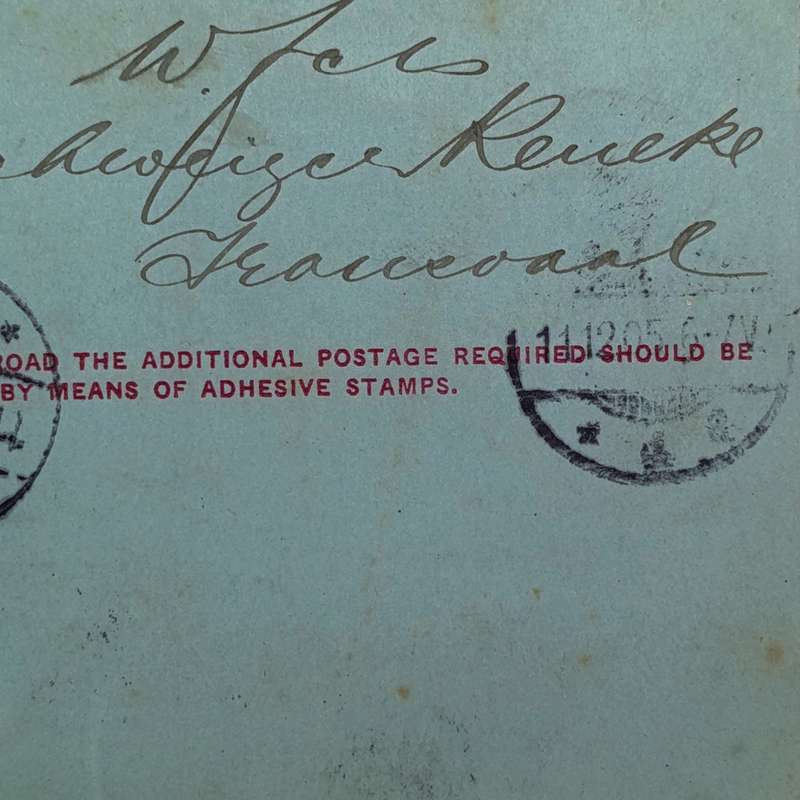 W. Fels
Schweizer Reneke
Transvaal
11.12.05 6-7V.
ROAD THE ADDITIONAL POSTAGE REQUIRED SHOULD BE
BY MEANS OF ADHESIVE STAMPS.